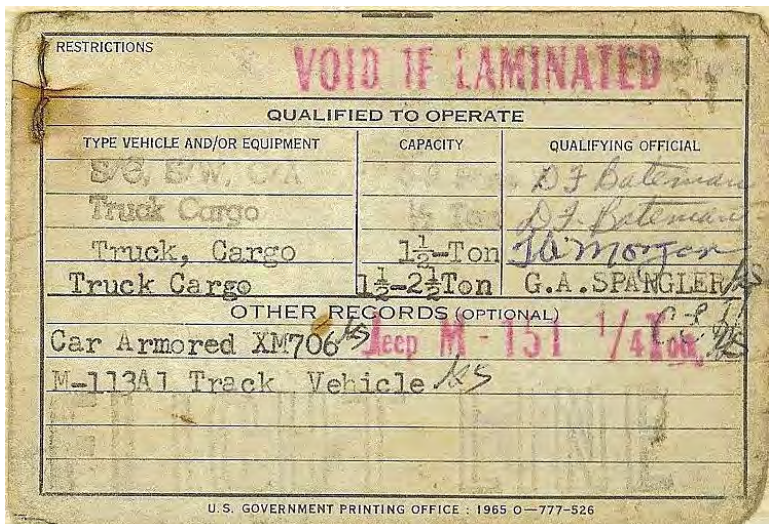 RESTRICTIONS
VOID IF LAMINATED
QUALIFIED TO OPERATE
TYPE VEHICLE AND/OR EQUIPMENT CAPACITY QUALIFYING OFFICIAL
S/S, S/W, C/A D F Bateman
Truck Cargo ½ Ton D. F. Bateman
Truck, Cargo 1½-Ton Morgan
Truck Cargo 1½-2½Ton G.A.SPANGLER
OTHER RECORDS (OPTIONAL)
Car Armored XM706 Jeep M-151 1/4 Ton
M-113A1 Track Vehicle
U.S. GOVERNMENT PRINTING OFFICE : 1965 O—777-526